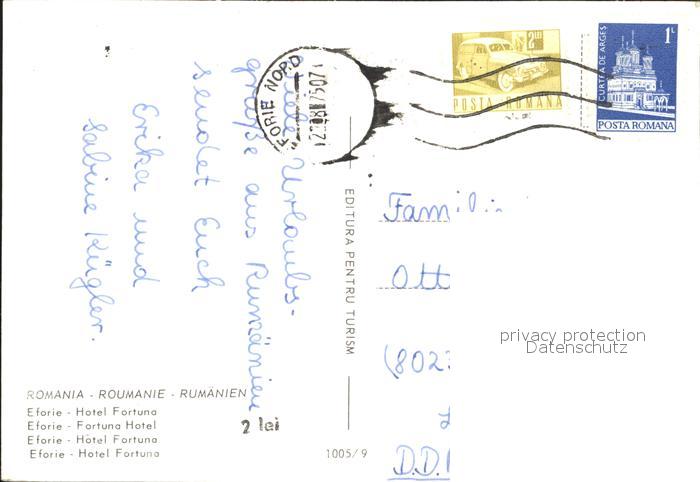 Liebe Urlaubs-
grüße aus Rumänien
sendet Euch
Erika und
Sabine Kügler.
ROMANIA - ROUMANIE - RUMÄNIEN
Eforie - Hotel Fortuna
Eforie - Fortuna Hotel
Eforie - Hôtel Fortuna
Eforie - Hotel Fortuna
2 lei
1005/9
EDITURA PENTRU TURISM
FORIE NORD
2 LEI
POSTA ROMANA
1L
CURTEA DE ARGES
POSTA ROMANA
Famili
Ott
(802
D.D.
privacy protection
Datenschutz